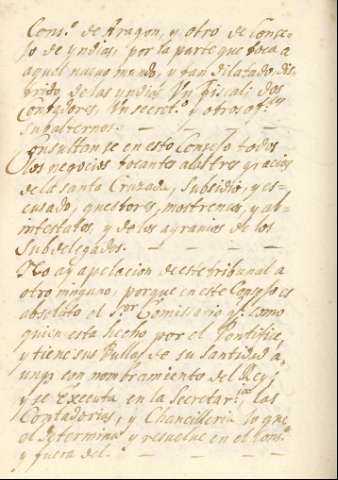 Cons.º de Aragon, y otro de Conse-
jo de yndias, por la parte que toca a
aquel nuevo mundo, y tan dilatado dis-
trito de las yndias Un fiscal: dos
Contadores, Un secret.º y otros of.les
subalternos.
Consultanse en este Consejo todos
los negocios tocantes alas tres gracias
de la santa Cruzada, Subsidio, y es-
cusado, questores, mostrencos, y ab-
intestatos, y de los agravios de los
Subdelegados.
No ay apelacion de este tribunal a
otro ninguno, porque en este Consejo es
absoluto el s.or Comissario g.l como
quien esta hecho por el Pontifice,
y tiene sus Bullas de su Santidad a-
unq.e con nombramiento del Rey;
y se Executa en la Secretar.ia las
Contadorias, y Chancilleria lo que
el determina y resuelve en el Cons.º
y fuera del.